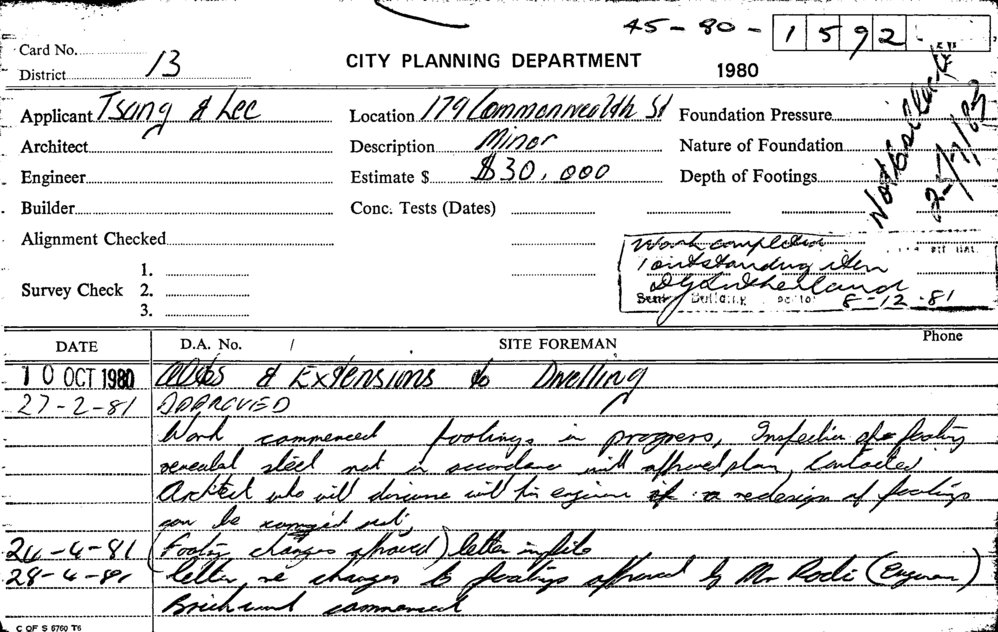 45-80-1592
Card No.
District 13
CITY PLANNING DEPARTMENT
1980
Applicant Tsang & Lee
Location 179 Commonwealth St
Foundation Pressure
Architect
Description Minor
Nature of Foundation
Engineer
Estimate $ $30,000
Depth of Footings
Builder
Conc. Tests (Dates)
Alignment Checked
Work completed
1 outstanding item
DG Sutherland
Building
8-12-81
Survey Check
1.
2.
3.
DATE
D.A. No. /
SITE FOREMAN
Phone
10 OCT 1980 & Extensions to Dwelling
27-2-81 APPROVED
Work commenced footings in progress, Inspection of footing
revealed steel not in accordance with approved plan, Contacted
Architect who will discuss with his engineer if a redesign of footings
can be carried out,
24-4-81 (Footing changes approved) letter in file
28-4-81 letter re changes to footings approved by Mr Rodi (Engineer)
Brickwork commenced
C OF S 6760 T6